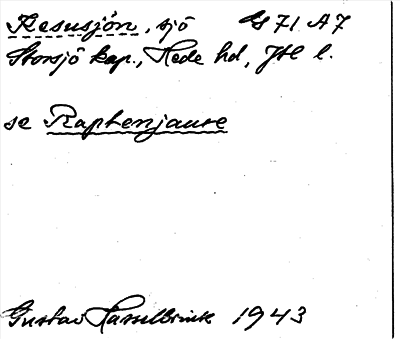 Resusjön, sjö GS 71 A7
Storsjö kap., Hede hd, JH l.
se Raptenjaure
Gustav Hasselbrink 1943